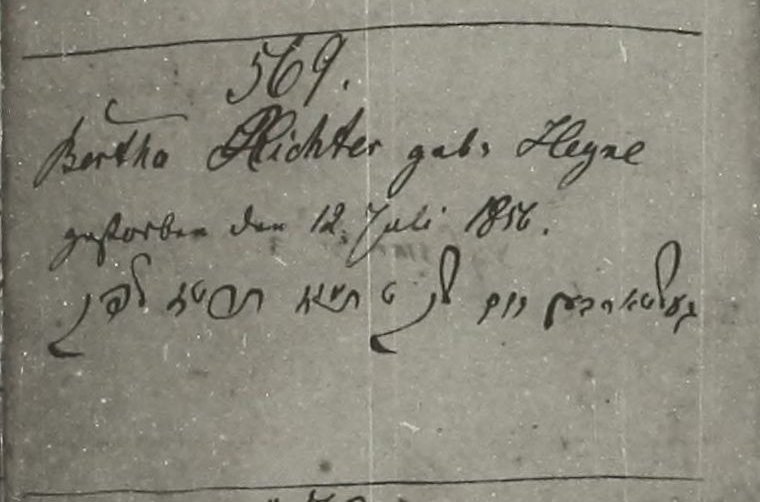 569.
Bertha Richter geb. Heyne
gestorben den 12. Juli 1856.
געשטארבען יום ש״ק ט תמוז תרט״ז לפ״ק